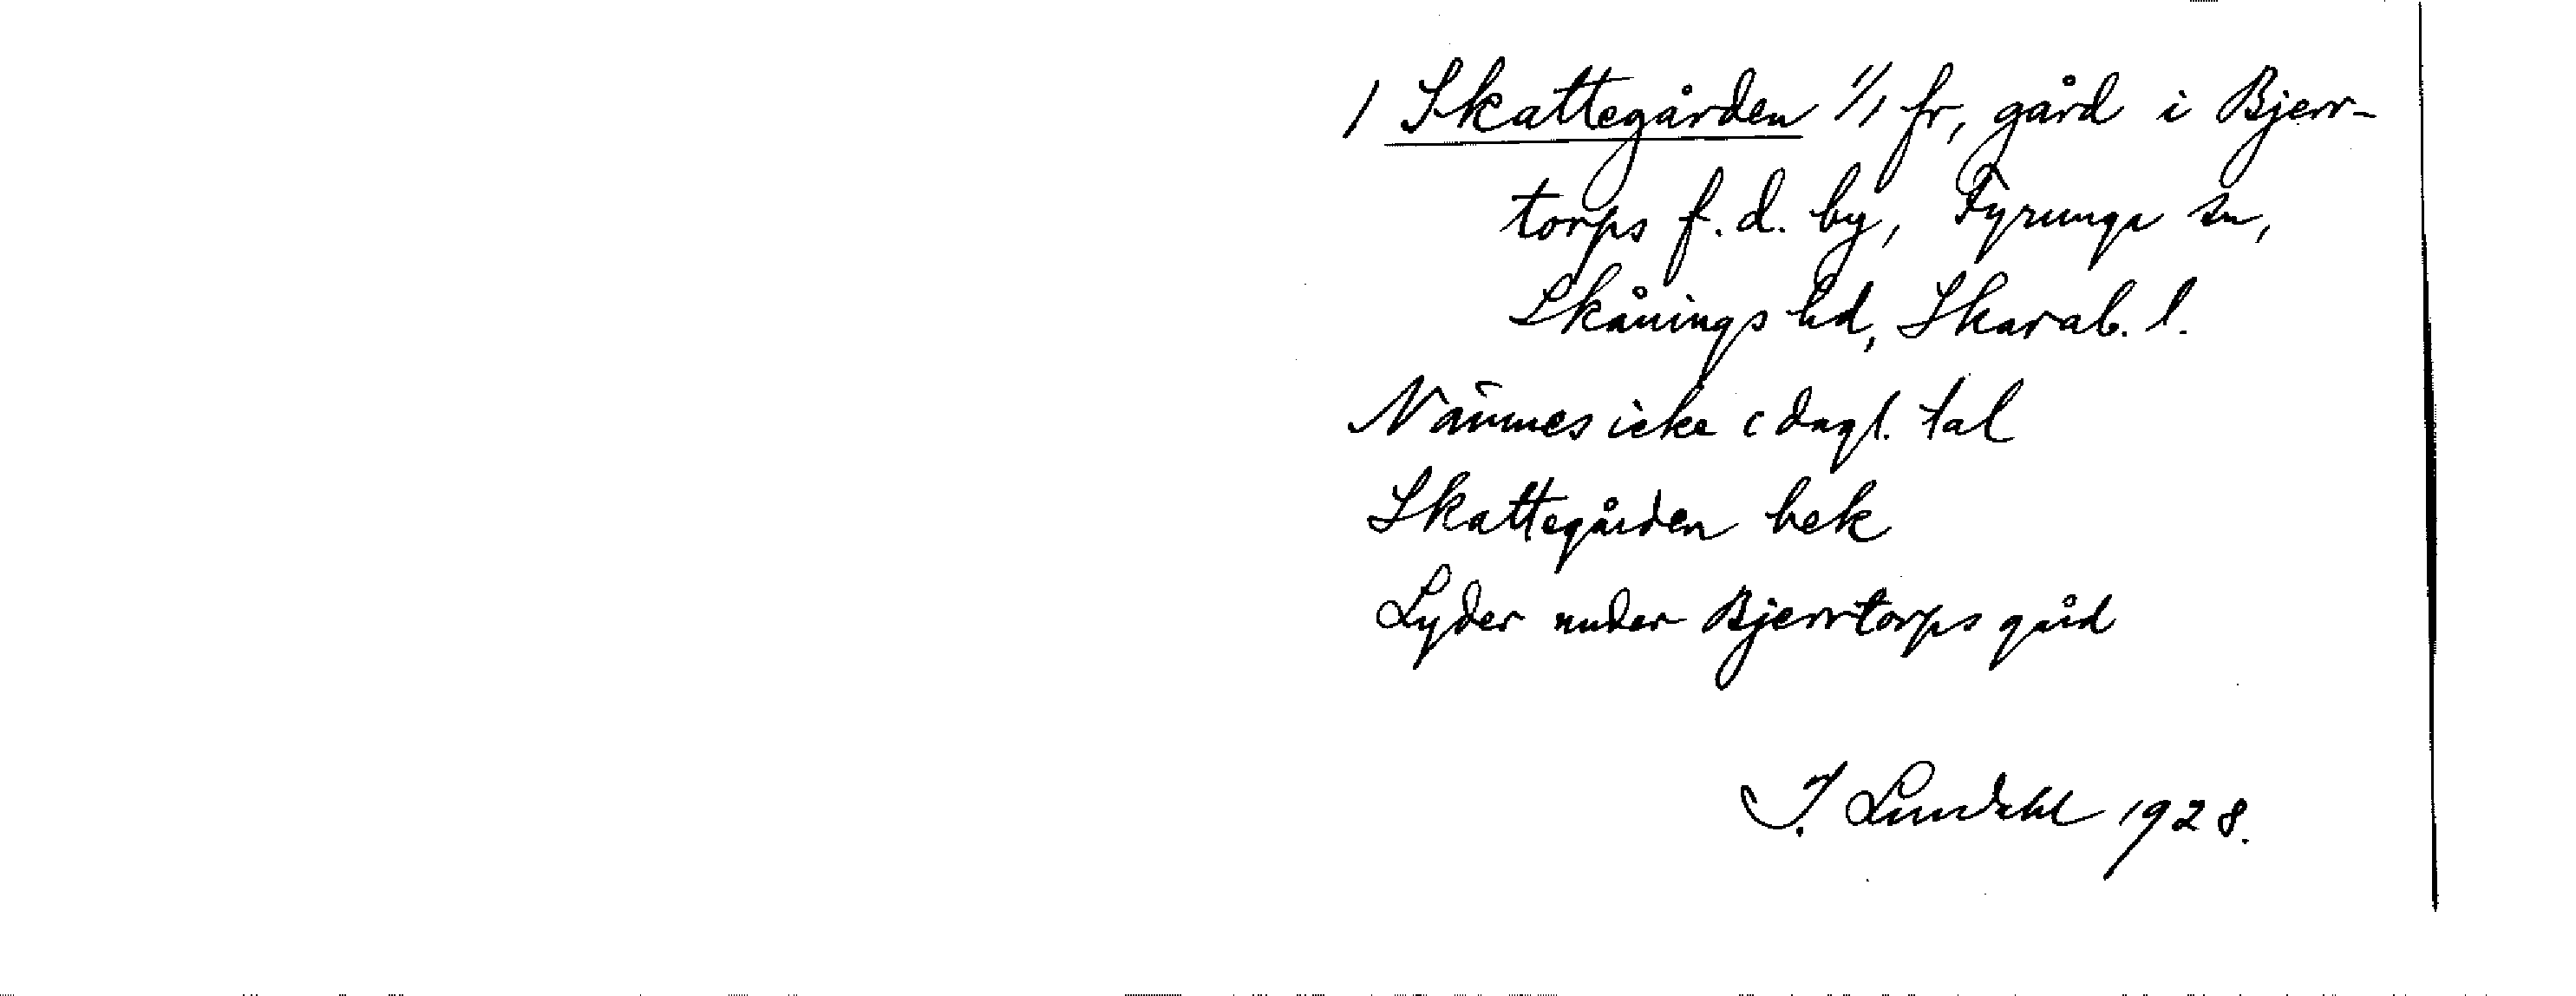 / Skattegården 1/1 fr, gård i Bjerr-
torps f.d. by, Fyrunga sn,
Skånings hd, Skarab. l.
Nämnes icke i dagl. tal
Skattegården bek
Lyder under Bjerrtorps gård
I. Lundahl 1928.